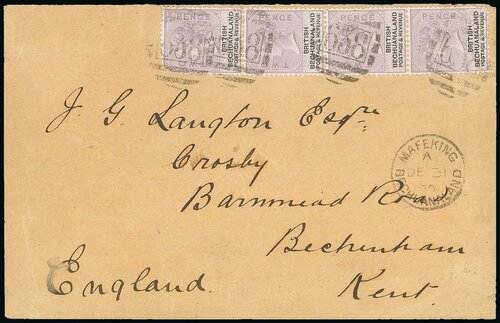 PENCE PENCE PENCE PENCE
BRITISH BECHUANALAND POSTAGE & REVENUE
BRITISH BECHUANALAND POSTAGE & REVENUE
BRITISH BECHUANALAND POSTAGE & REVENUE
BRITISH BECHUANALAND POSTAGE & REVENUE
638
J. G. Langton Esqre
Crosby
Barnmead Rd
Beckenham
Kent.
England.
MAFEKING
A
DE
BECHUANALAND